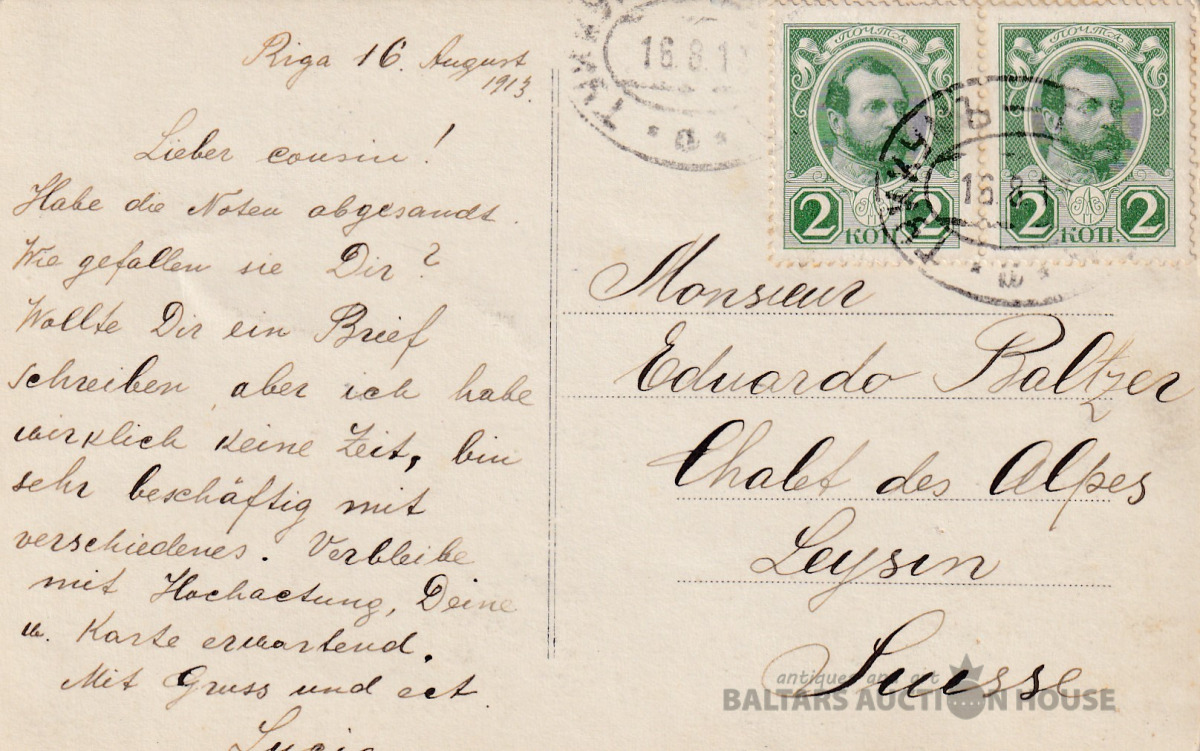 Riga 16. August
1913.
Lieber cousin!
Habe die Noten abgesandt.
Wie gefallen sie Dir?
Wollte Dir ein Brief
schreiben, aber ich habe
wirklich keine Zeit, bin
sehr beschäftig mit
verschiedenes. Verbleibe
mit Hochactung, Deine
u. Karte erwartend.
Mit Gruss und ect
Lucia
ПОЧТА
2 2
КОП.
ПОЧТА
2 2
КОП.
16.8.1
16.8.1
Monsieur
Eduardo Baltzer
Chalet des Alpes
Leysin
Suisse
antiques and art
BALTARS AUCTION HOUSE